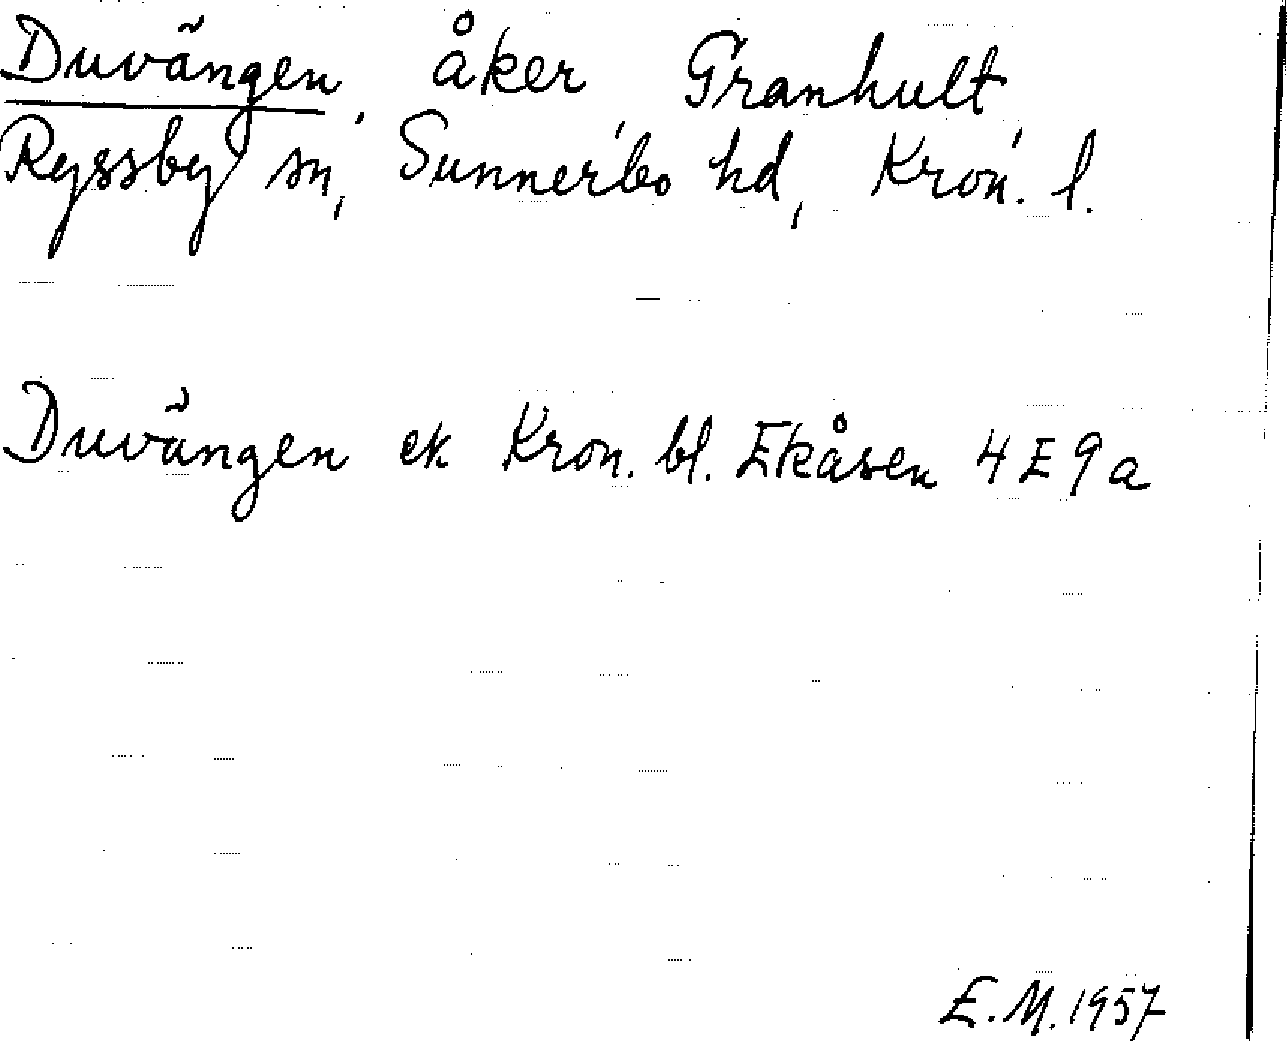 Duvängen, åker, Granhult,
Ryssby sn, Sunnerbo hd, Kron. l.
Duvängen ek Kron. bl. Ekåsen 4E9a
E.M. 1957